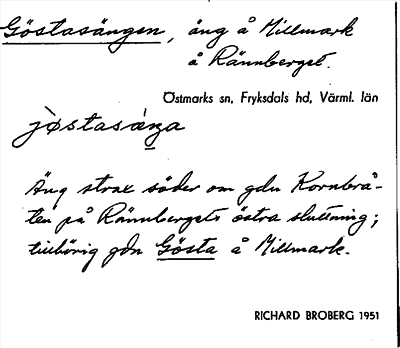 Göstasängen, äng å Millmark
å Rännberget.
Östmarks sn, Fryksdals hd, Värml. län
Äng strax söder om gdn Kornbrå-
ten på Rännbergets östra sluttning;
tillhörig gdn Gösta å Millmark.
RICHARD BROBERG 1951